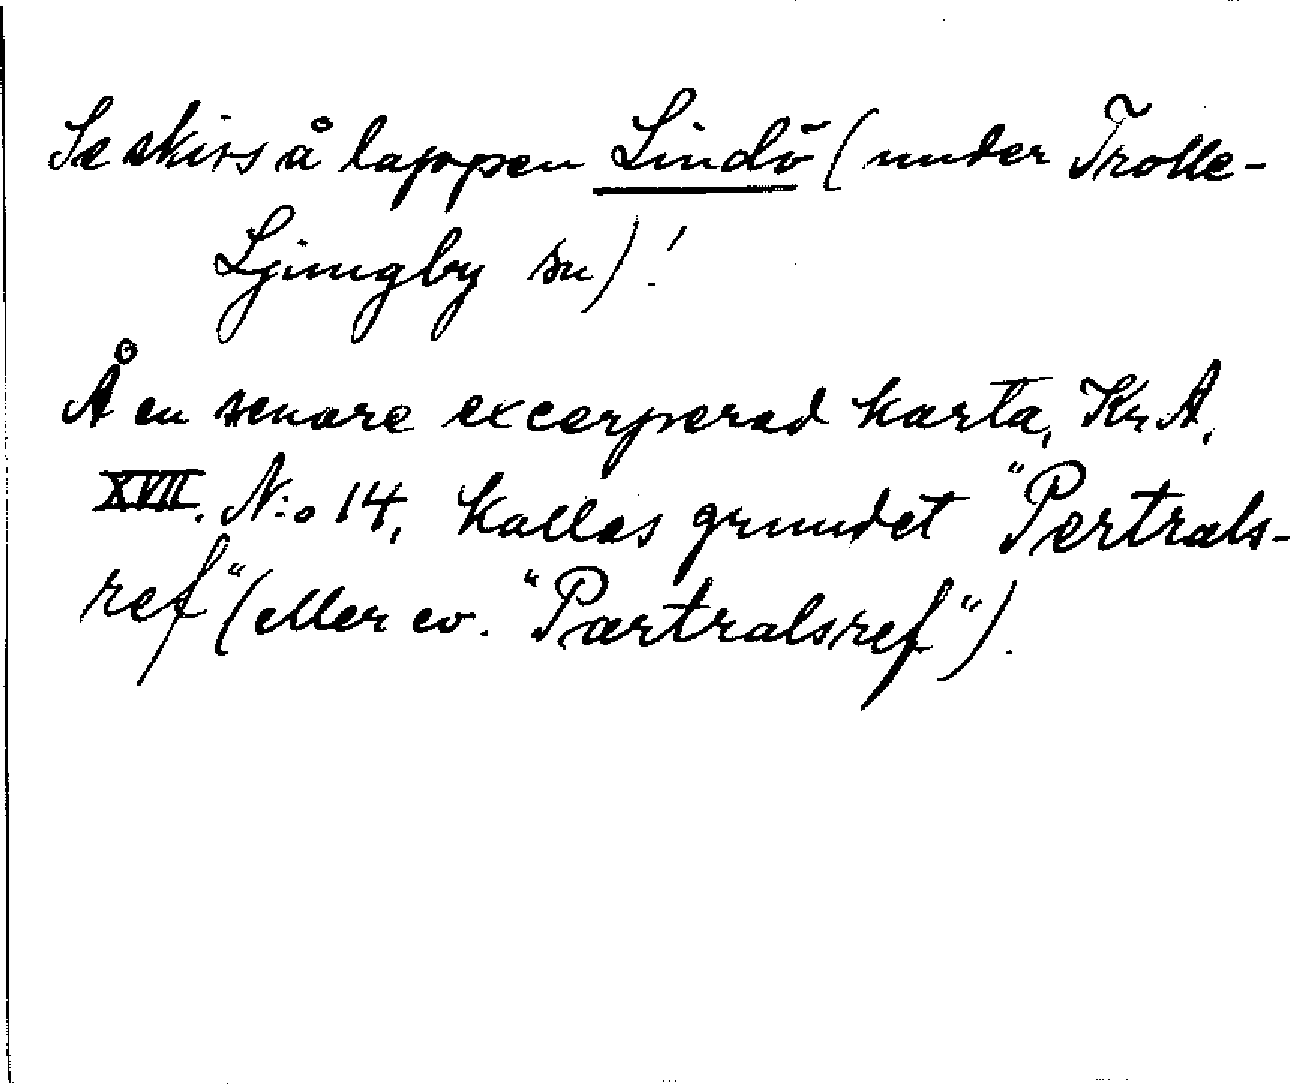 Se skiss å lappen Lindö (under Trolle-
Ljungby sn)!
Å en senare excerperad karta, Kr. A.
XVII. N:o 14, kallas grundet "Pertrals-
ref" (eller ev. "Partralsref").